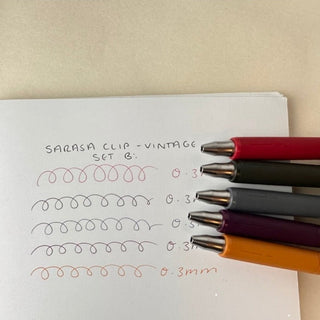 SARASA CLIP - VINTAGE
SET B:
0.3
0.3
0.3
0.3
0.3mm